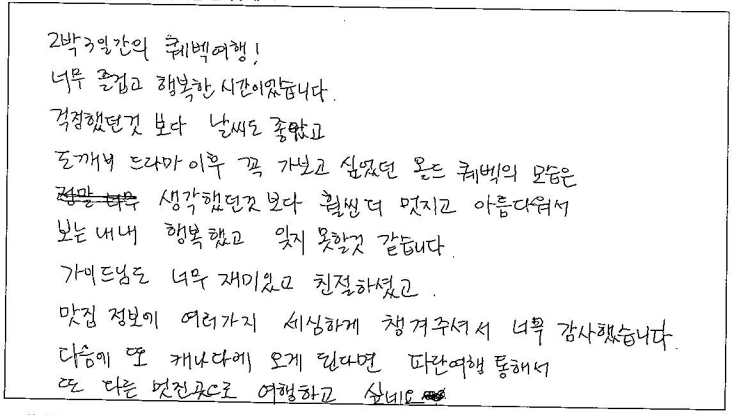 2박3일간의 퀘벡여행!
너무 즐겁고 행복한 시간이었습니다.
걱정했던것 보다 날씨도 좋았고
도깨비 드라마 이후 꼭 가보고 싶었던 올드 퀘벡의 모습은
정말 너무 생각했던것 보다 훨씬 더 멋지고 아름다워서
보는내내 행복했고 잊지 못할것 같습니다.
가이드님도 너무 재미있고 친절하셨고.
맛집 정보에 여러가지 세심하게 챙겨주셔서 너무 감사했습니다.
다음에 또 캐나다에 오게 된다면 파란여행 통해서
또 다른 멋진곳으로 여행하고 싶네요